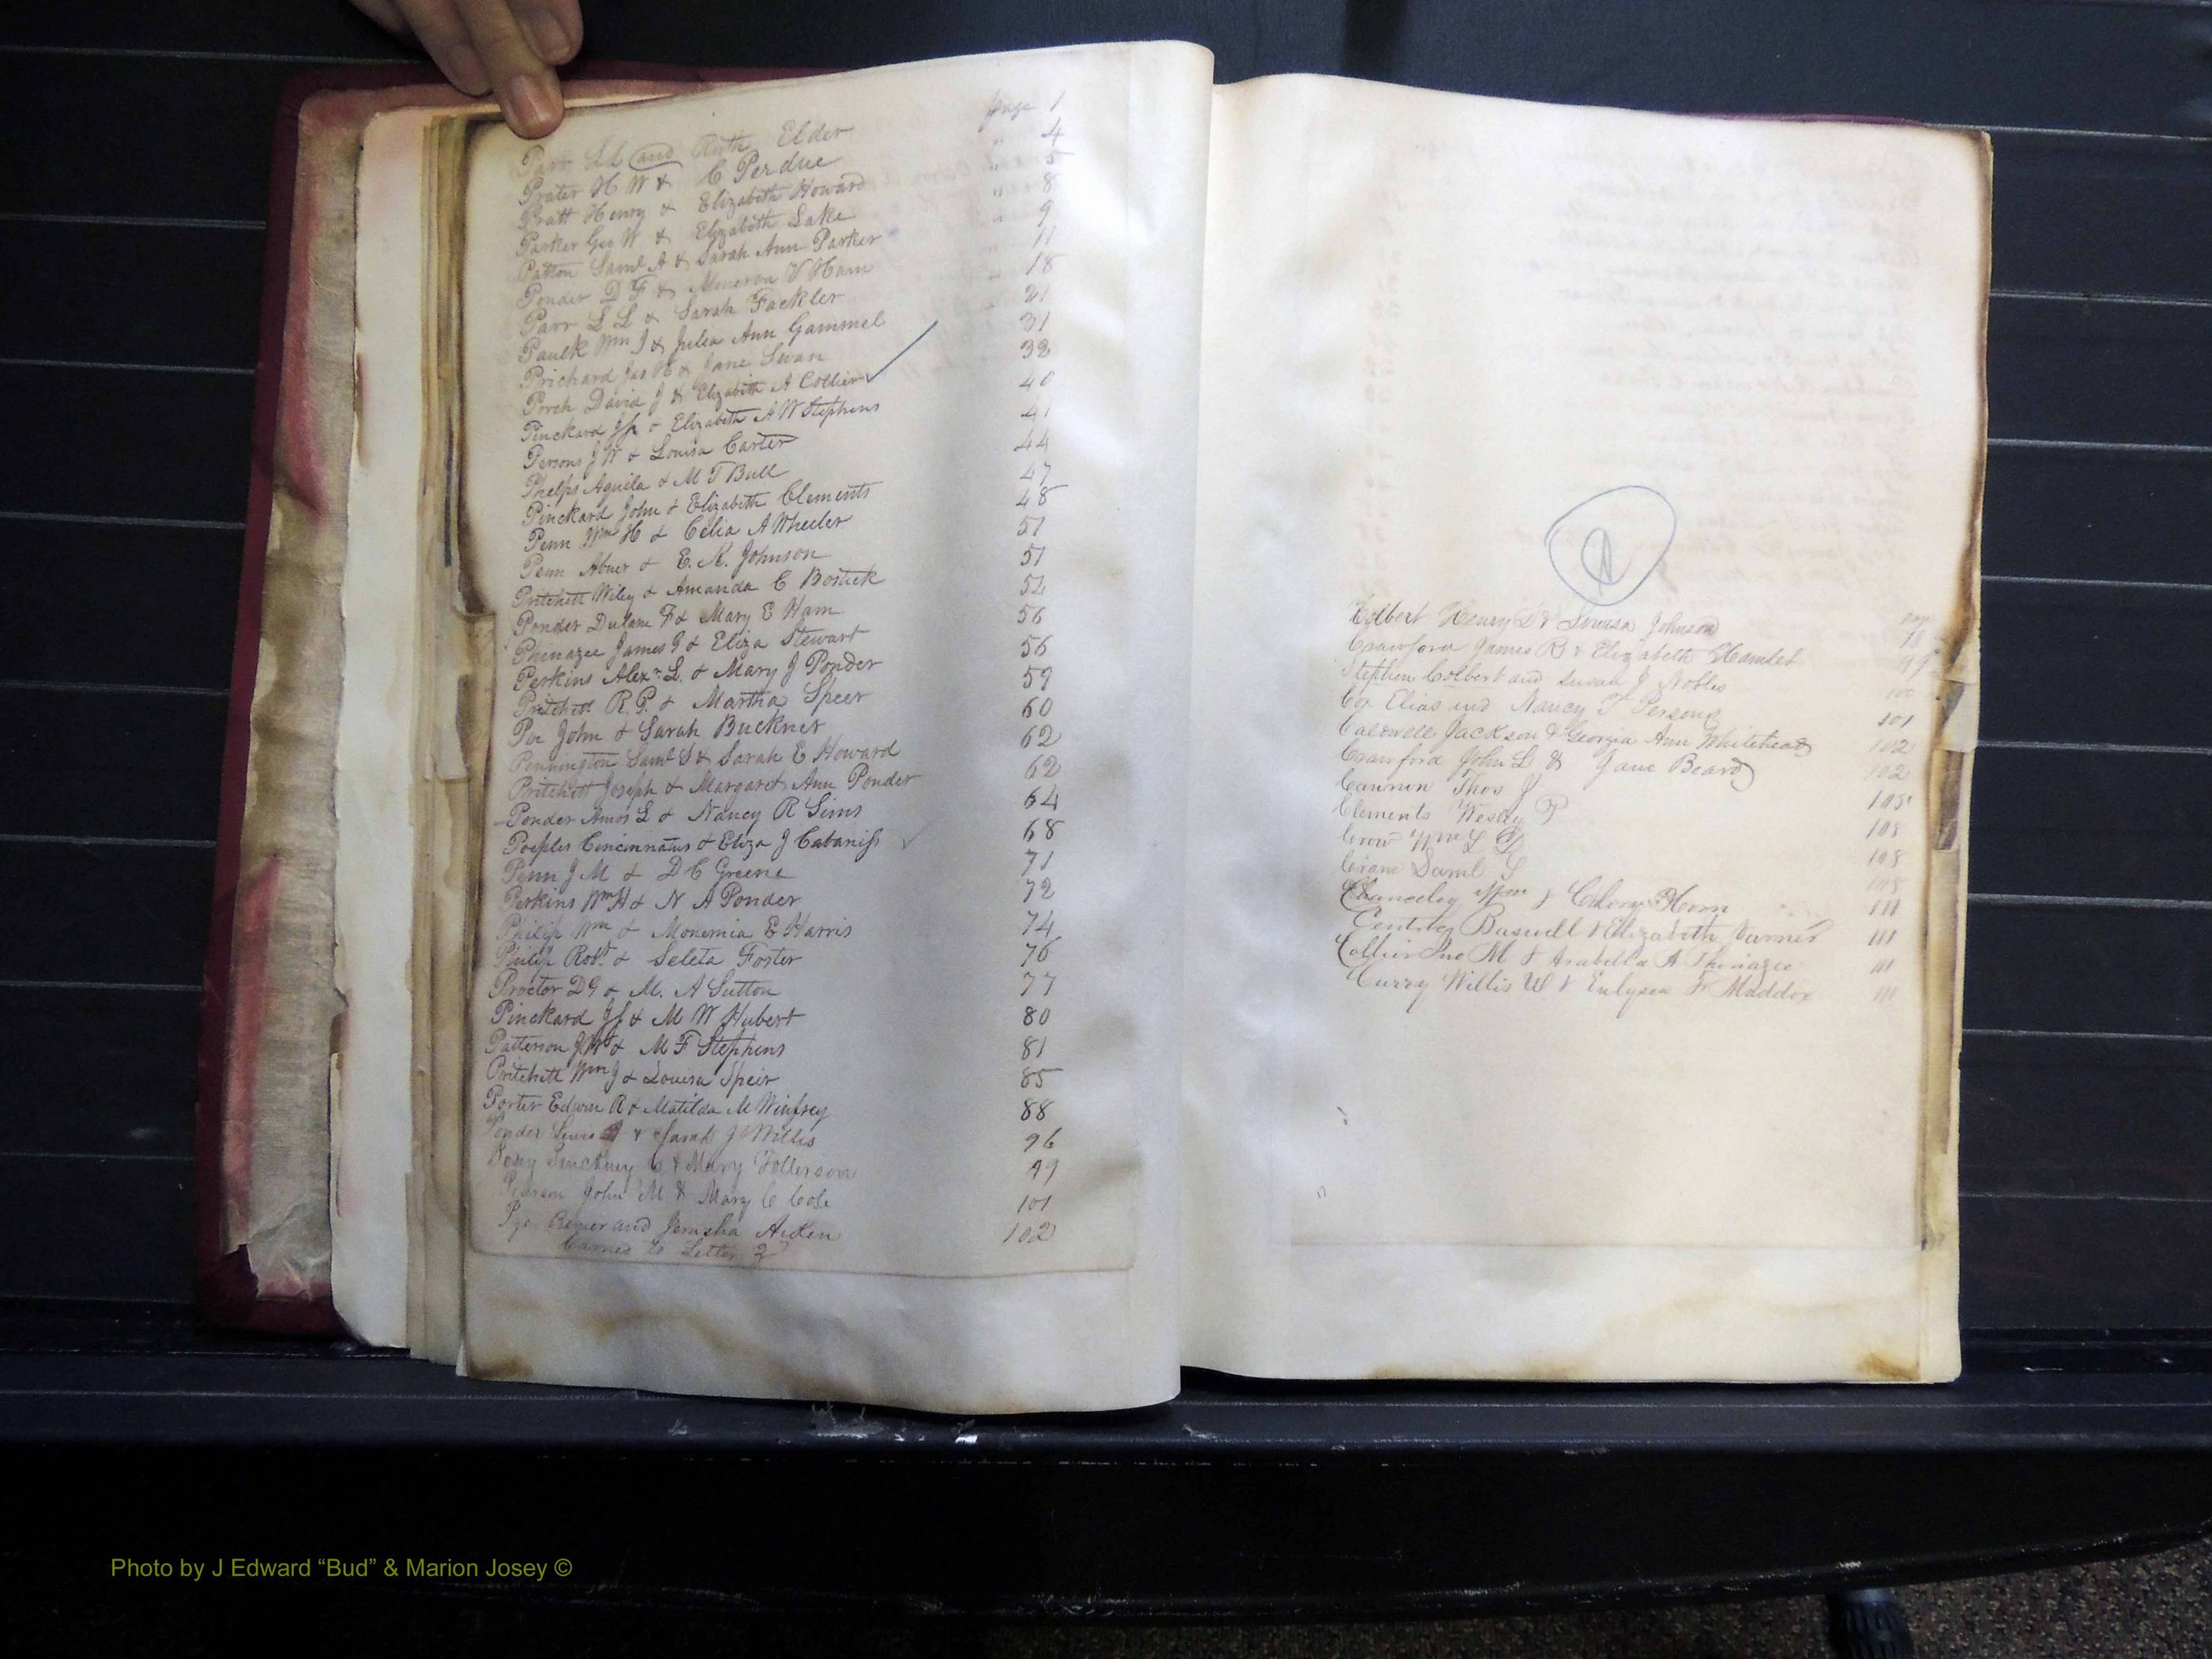 page 1
Parr L L and Ruth Elder
Prater H W & C Perdue " 4
Pratt Henry & Elizabeth Howard " 5
Parker Geo W & Elizabeth Lake " 8
Patton Saml A & Sarah Ann Parker " 9
Ponder D F & Minerva V Ham " 11
Parr L L & Sarah Fackler " 18
Paulk Wm J & Julia Ann Gammel 21
Prichard Jas H & Jane Swan 31
Porch David J & Elizabeth A Collier 32
Pinckard & Elizabeth A W Stephens 40
Persons J W & Louisa Carter 41
Phelps Aquila & M T Bull 44
Pinckard John & Elizabeth Clements 47
Penn Wm H & Celia A Wheeler 48
Penn Abner & E. R. Johnson 51
Pritchett Wiley & Amanda C Bostick 51
Ponder Dulane F & Mary E Ham 52
Phenazee James G & Eliza Stewart 56
Perkins Alexr. L. & Mary J Ponder 56
Pritchett R. P. & Martha Speer 59
Poe John & Sarah Buckner 60
Pennington Saml S & Sarah E Howard 62
Pritchett Joseph & Margaret Ann Ponder 62
Ponder Amos L & Nancy R Sims 64
Peeples Cincinnatus & Eliza J Cabaniss 68
Penn J M & D C Greene 71
Perkins Wm H & N A Ponder 72
Philip Wm & Monemia E Harris 74
Philip Robt & Seleta Foster 76
Proctor D G & M. A Sutton 77
Pinckard & M W Hubert 80
Patterson J W & M F Stephens 81
Pritchett Wm J & Louisa Speir 85
Porter Edwin R & Matilda M Winfrey 88
Ponder Lewis & Sarah J Willis 96
& Mary 99
John M & Mary C Cole 101
and Jerusha Aiken 102
Carried to Letter
page
Colbert Henry S & Louisa Johnson 98
Crawford James B & Elizabeth Hamlet 99
Stephen Colbert and Susan J Nobles 100
Cox Elias and Nancy T Persons 101
Caldwell Jackson & Georgia Ann Whitehead 102
Crawford John L & Jane Beard 102
Cannon Thos J 105
Clements Wesley P 105
Crow Wm 108
Crane Saml S 108
Chanceley Wm & Horn 111
Buswell & Elizabeth Turner 111
Collier Jno M & Arabella A Phinazee 111
Curry Willis W & F Maddox 111
Photo by J Edward “Bud” & Marion Josey ©